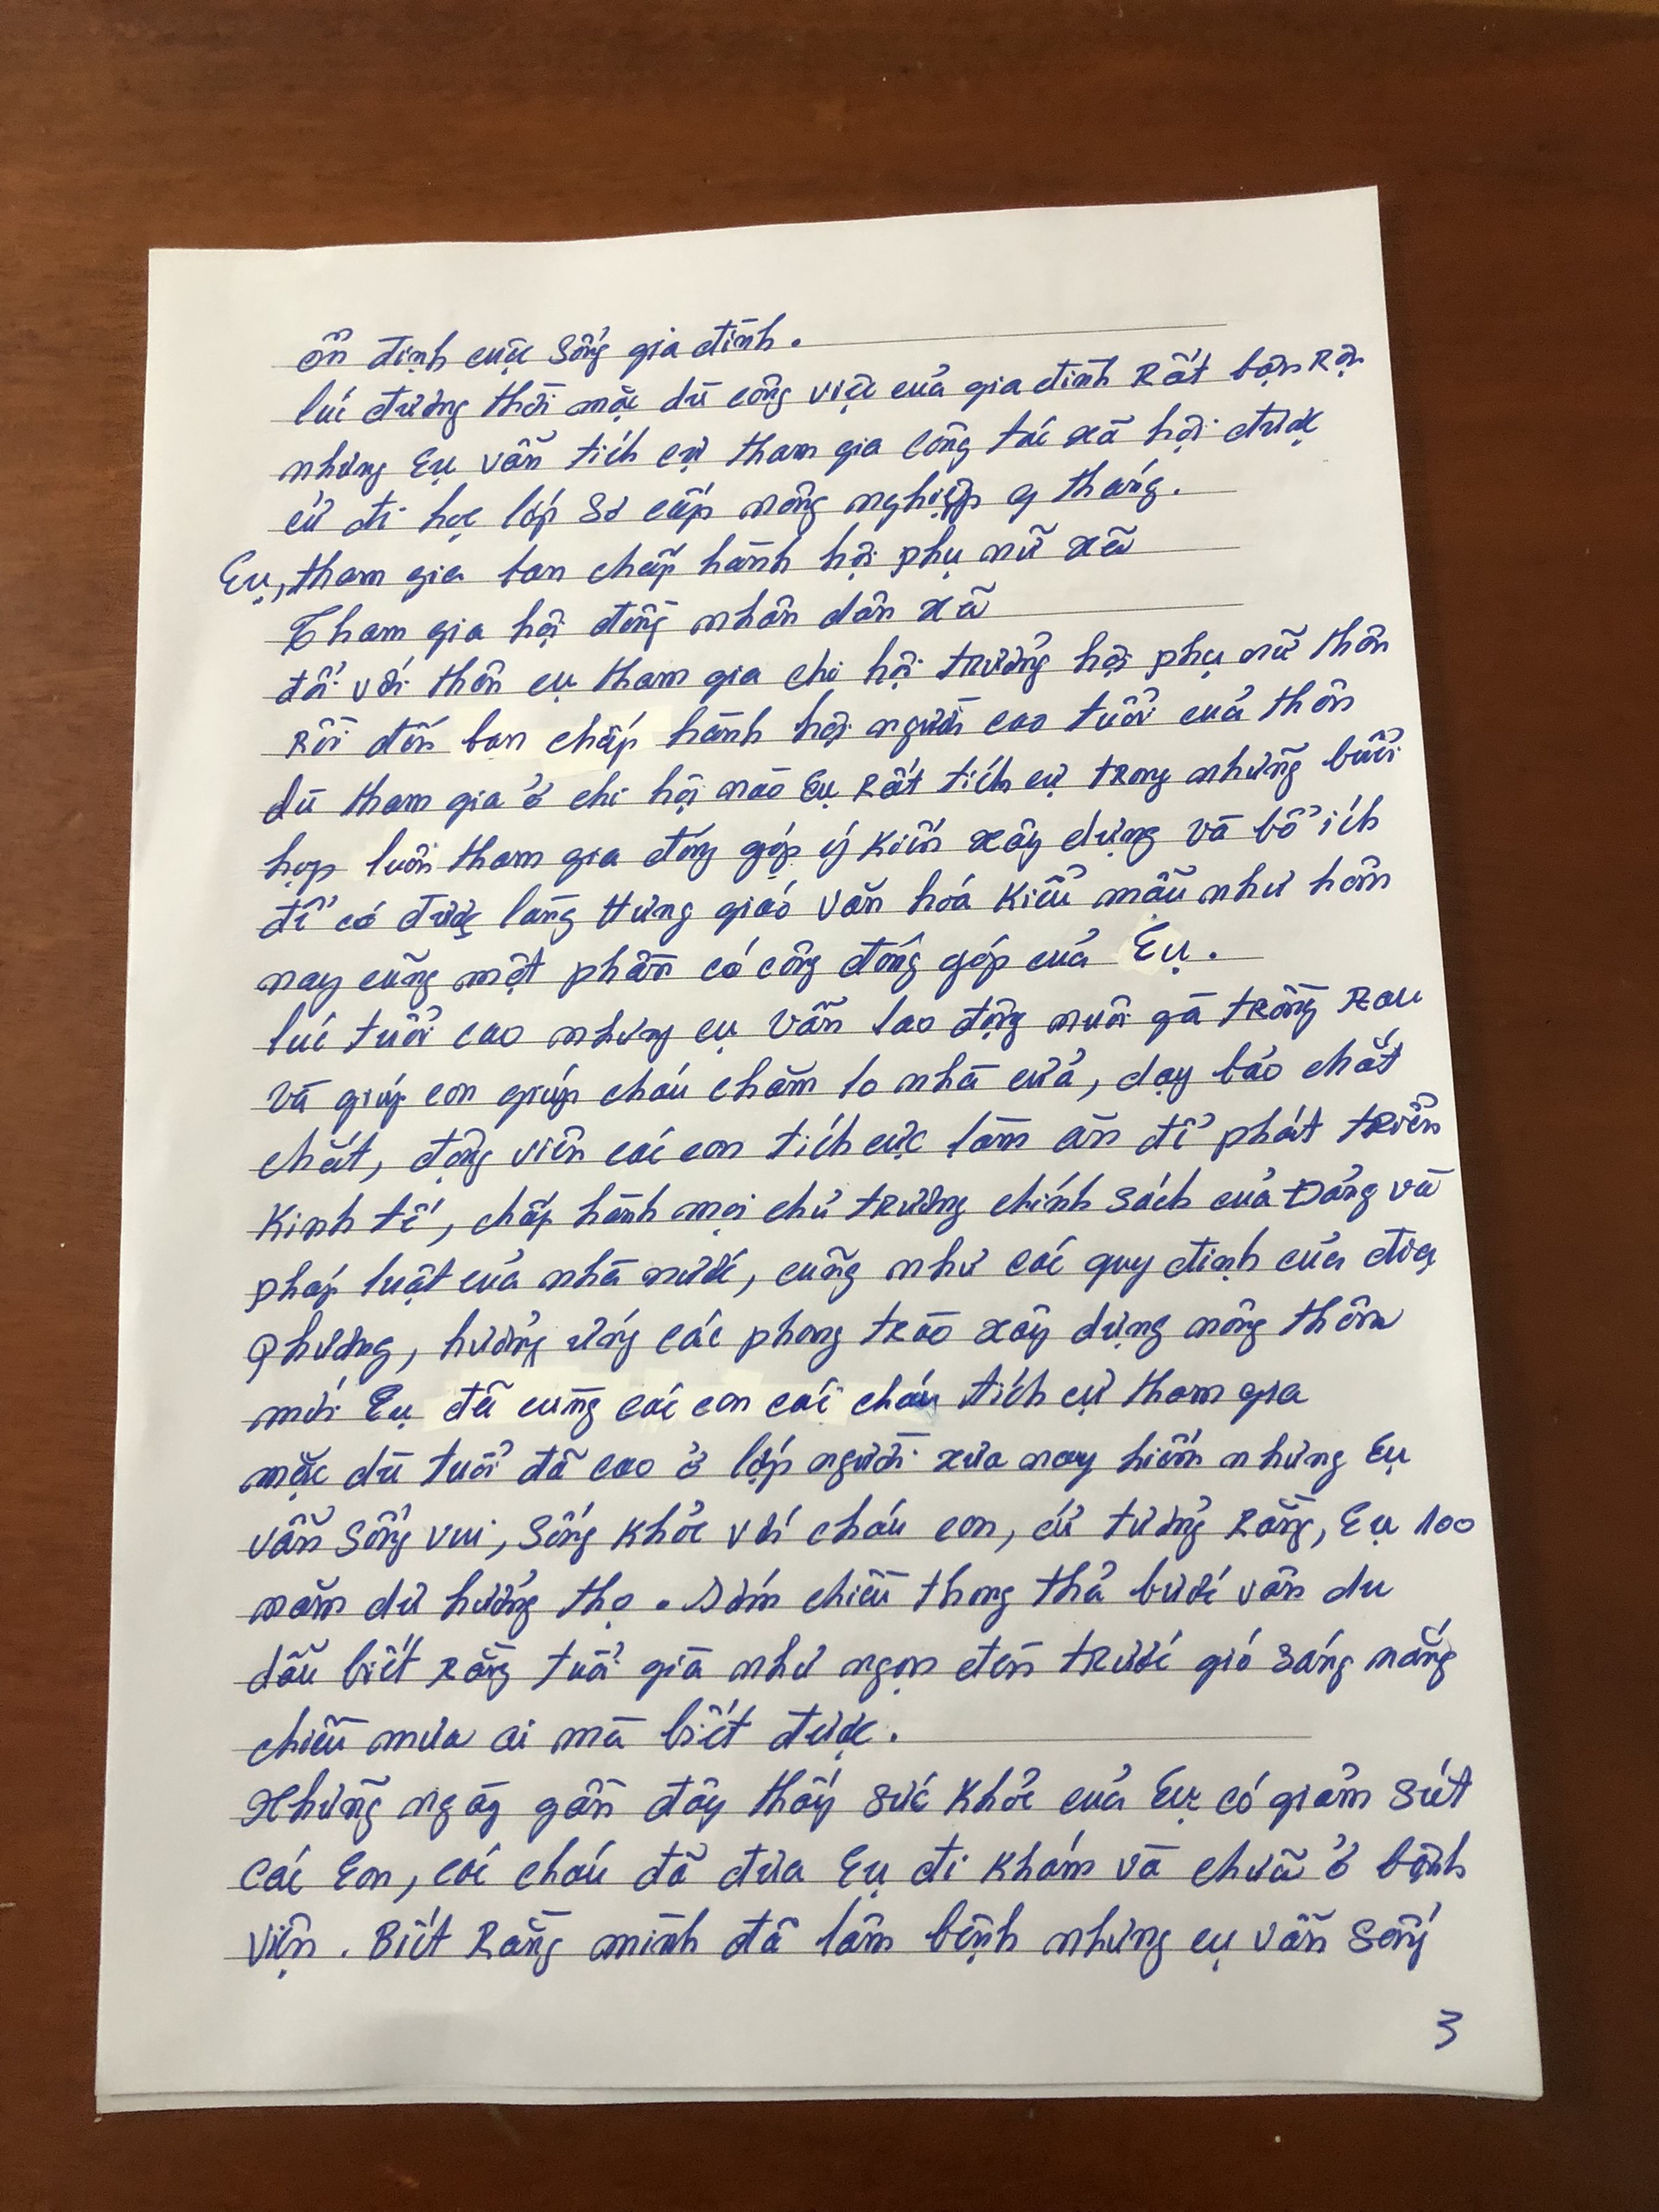 ổn định cuộc sống gia đình.
lúc đương thời mặc dù công việc của gia đình Rất bận Rộn
nhưng Cụ vẫn tích cự tham gia công tác xã hội được
cử đi học lớp sơ cấp nông nghiệp 9 tháng.
Cụ, tham gia ban chấp hành hội phụ nữ xã
Tham gia hội đồng nhân dân xã
đối với thôn cụ tham gia chi hội trưởng hội phụ nữ thôn
Rồi đến ban chấp hành hội người cao tuổi của thôn
dù tham gia ở chi hội nào Cụ Rất tích cự trong những buổi
họp luôn tham gia đóng góp ý kiến xây dựng và bổ ích
để có được làng Hưng giáo văn hoá kiểu mẫu như hôm
nay cũng một phần có công đóng góp của Cụ.
lúc tuổi cao nhưng cụ vẫn lao động nuôi gà trồng Rau
và giúp con giúp cháu chăm lo nhà cửa, dạy bảo chắt
chắt, động viên các con tích cực làm ăn để phát triển
kinh tế, chấp hành mọi chủ trương chính sách của Đảng và
pháp luật của nhà nước, cũng như các quy định của địa
Phương, hưởng ứng các phong trào xây dựng nông thôn
mới Cụ đã cùng các con các cháu tích cự tham gia
mặc dù tuổi đã cao ở lớp người xưa nay hiếm nhưng Cụ
vẫn sống vui, sống khỏe với cháu con, cứ tưởng Rằng, Cụ 100
năm dư hưởng thọ. Sớm chiều thong thả bước vân du
dẫu biết Rằng tuổi già như ngọn đèn trước gió sáng nắng
chiều mưa ai mà biết được.
Những ngày gần đây thấy sức khỏe của Cụ có giảm sút
các Con, các cháu đã đưa Cụ đi khám và chữa ở bệnh
viện. Biết Rằng mình đã lâm bệnh nhưng cụ vẫn sống
3